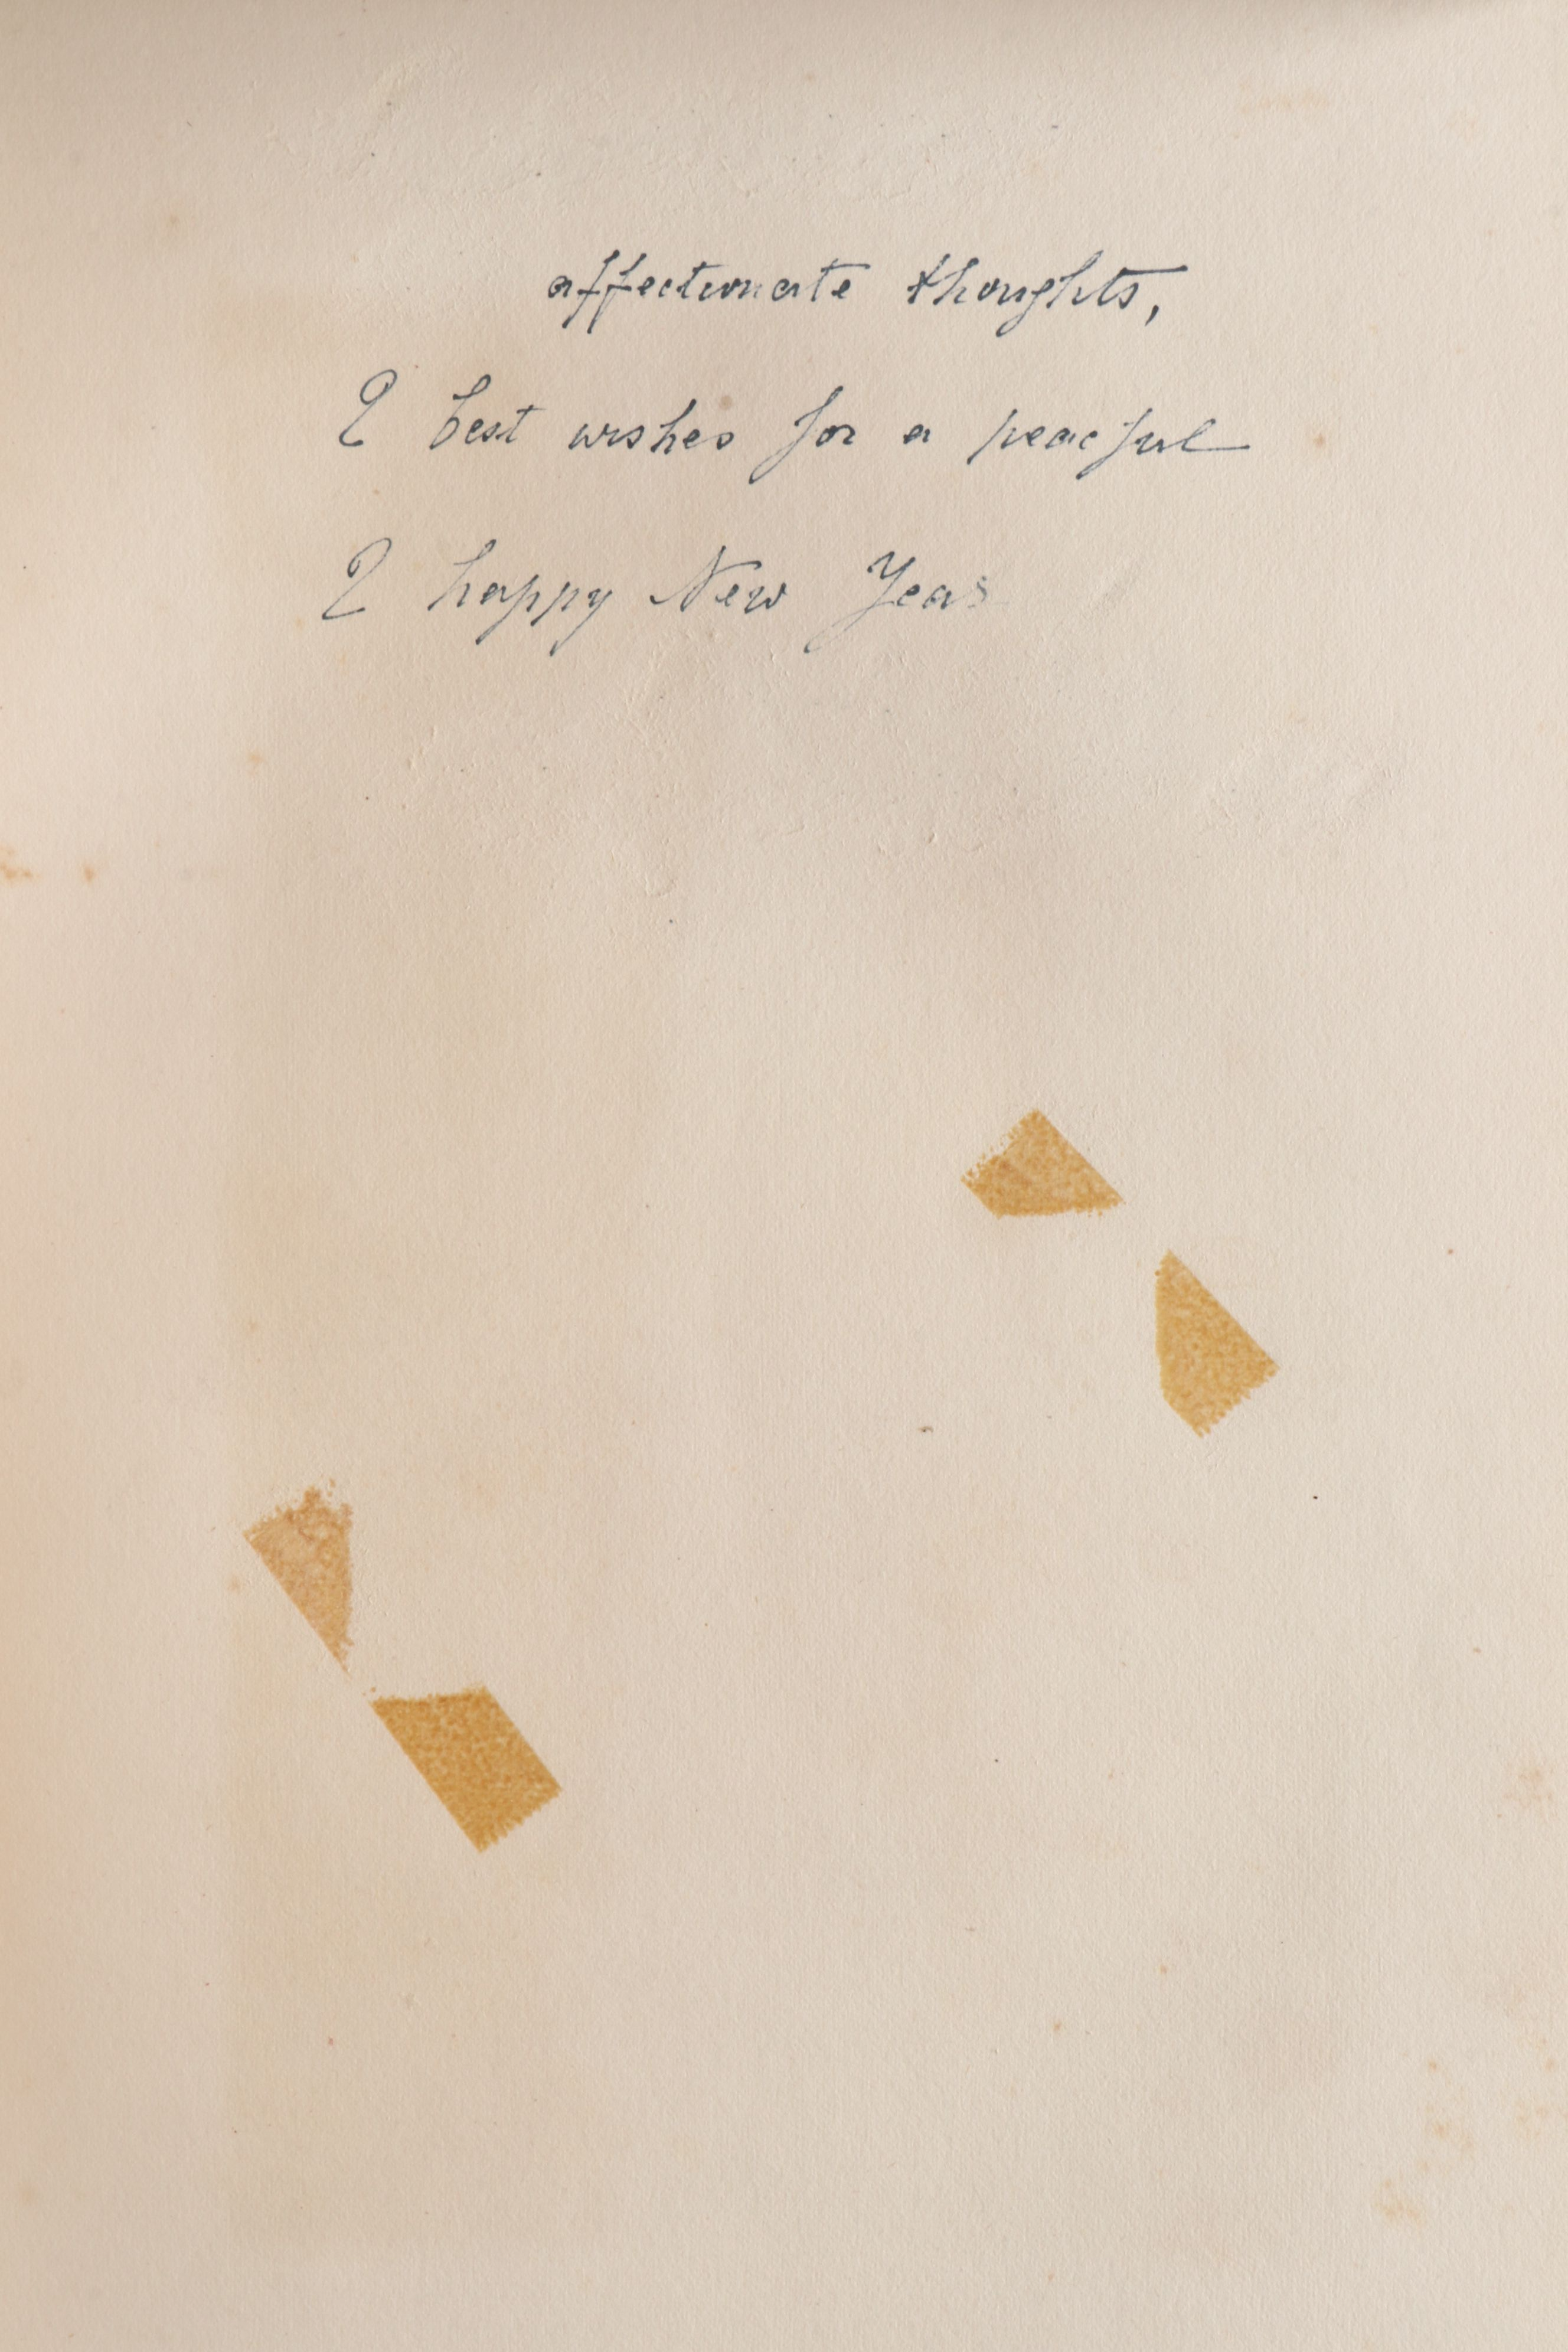 affectionate thoughts,
& best wishes for a peaceful
& happy New Year